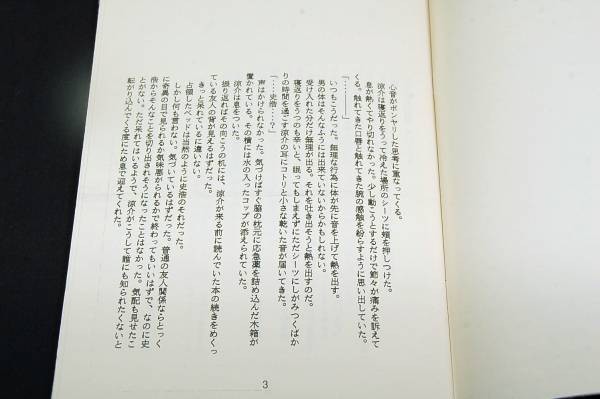 心音がボンヤリした思考に重なってくる。
涼介は寝返りをうって冷えた場所のシーツに頬を押しつけた。
息が熱くてやり切れなかった。少し動こうとするだけで節々が痛みを訴えて
くる。触れてきた口唇と触れてきた腕の感触を紛らすように思い出していた。
「・・・・・・・・・・」
いつもこうだった。無理な行為に体が先に音を上げて熱を出す。
男の体はそんなふうには出来ていないからかもしれない。
受け入れた分だけ無理が出る。それを吐き出そうと熱を出すのだ。
寝返りをうつのも辛いと、眠ってもしまえずにただシーツにしがみつくばか
りの時間を過ごす涼介の耳にコトリと小さな乾いた音が届いてきた。
「・・・史浩・・・?」
声はかけられなかった。気づけばすぐ脇の枕元に応急薬を詰め込んだ木箱が
置かれている。その横には水の入ったコップが添えられていた。
涼介は息をついた。
振り返ればその向こうの机には、涼介が来る前に読んでいた本の続きをめくっ
ている友人の背が見えるはずだった。
きっと呆れているに違いない。
占領したベッドは当然のように史浩のそれだった。
しかし何も言わない。気づいているはずだった。普通の友人関係ならとっく
に奇異の目で見られるか気味悪がられるかで終わってもいいはずで、なのに史
浩からそんなことを切り出されそうになったことはなかった。気配も見せたこ
とがない。ただ呆れてはいるようで、涼介がこうして誰にも知られたくないと
転がり込んでくる度にため息で迎えてくれた。
3